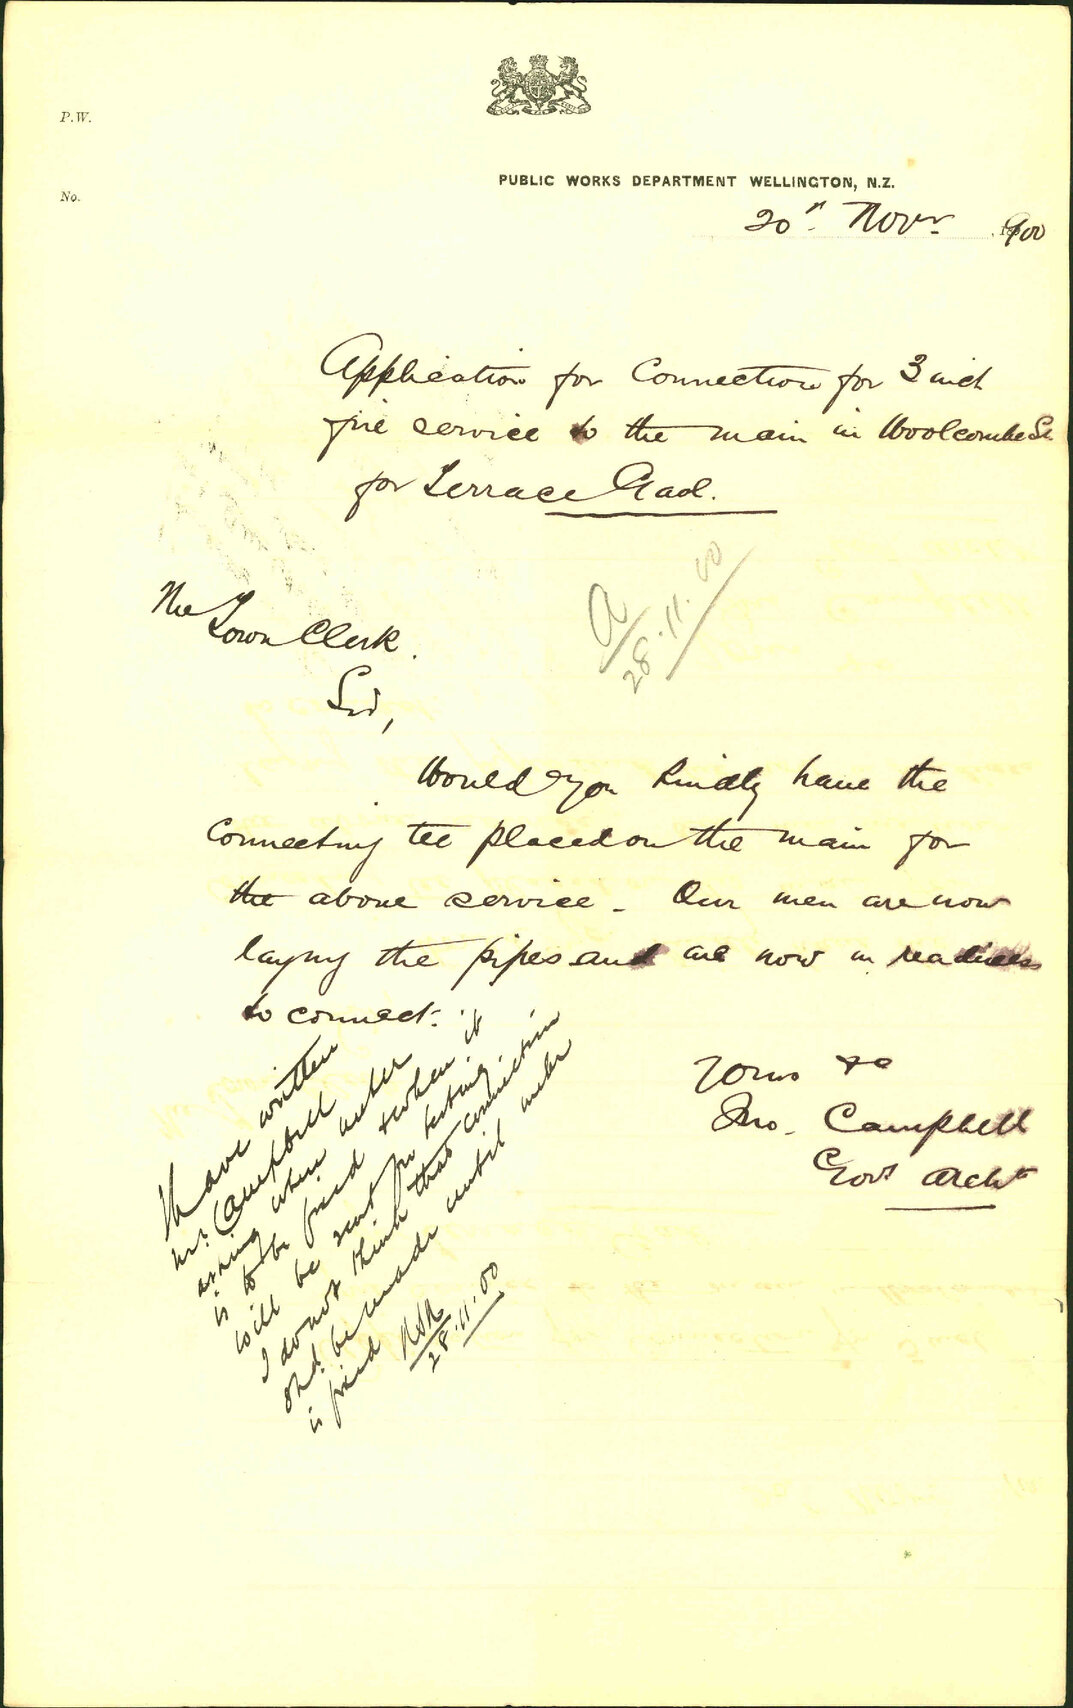 P.W.
No.
PUBLIC WORKS DEPARTMENT WELLINGTON, N.Z.
20th Novr. 1900
Application for Connection for 3 inch
fire service to the main in Woolcombe St.
for Terrace Gaol.
28.11.00
The
Town Clerk.
Sir,
Would you kindly have the
Connecting tee placed on the main for
the above service. Our men are now
laying the pipes and are now in readiness
to connect.
Yours &c
Jno. Campbell
Govt Archt
Have written
Mr. Campbell
asking where meter
is to be fixed & when it
will be sent for testing
I do not think that connection
shd. be made until meter
is fixed
28.11.00